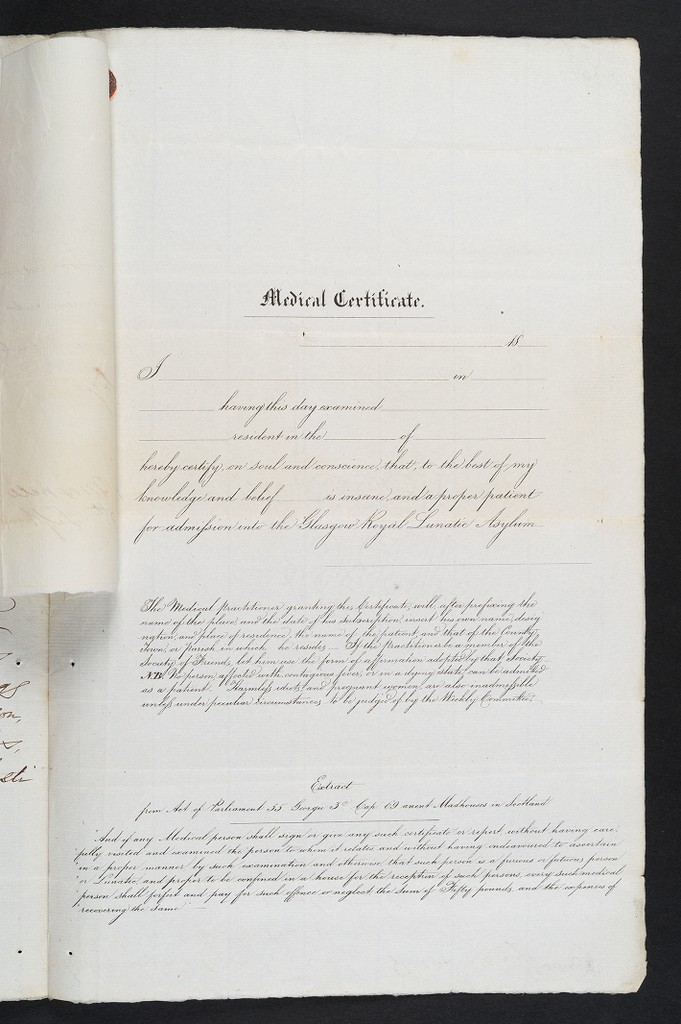 Medical Certificate.
18
I in
having this day examined
resident in the of
hereby certify, on soul and conscience, that, to the best of my
knowledge and belief is insane, and a proper patient
for admission into the Glasgow Royal Lunatic Asylum
The Medical Practitioner granting this Certificate, will, after prefixing the
name of the place, and the date of his subscription, insert his own name, desig
nation, and place of residence, the name of the patient, and that of the County,
Town, or parish in which he resides. If the Practitioner be a member of the
Society of Friends, let him use the form of affirmation adopted by that Society.
N.B. No person affected with contagious fever, or in a dying state, can be admitted
as a patient. Harmless idiots, and pregnant women, are also inadmissible
unless under peculiar circumstances, to be judged of by the Weekly Committee.
Extract
from Act of Parliament 55 Georgii 3ᵒ Cap 69 anent Madhouses in Scotland
"And if any Medical person shall sign or give any such certificate or report without having care,
"fully visited and examined the person to whom it relates and without having endeavoured to ascertain
in a proper manner by such examination and otherwise, that such person is a furious or fatuous person
"or Lunatic, and proper to be confined in a house for the reception of such persons, every such medical
"person shall forfeit and pay for such offence or neglect the Sum of Fifty pounds, and the expenses of
"recovering the same"